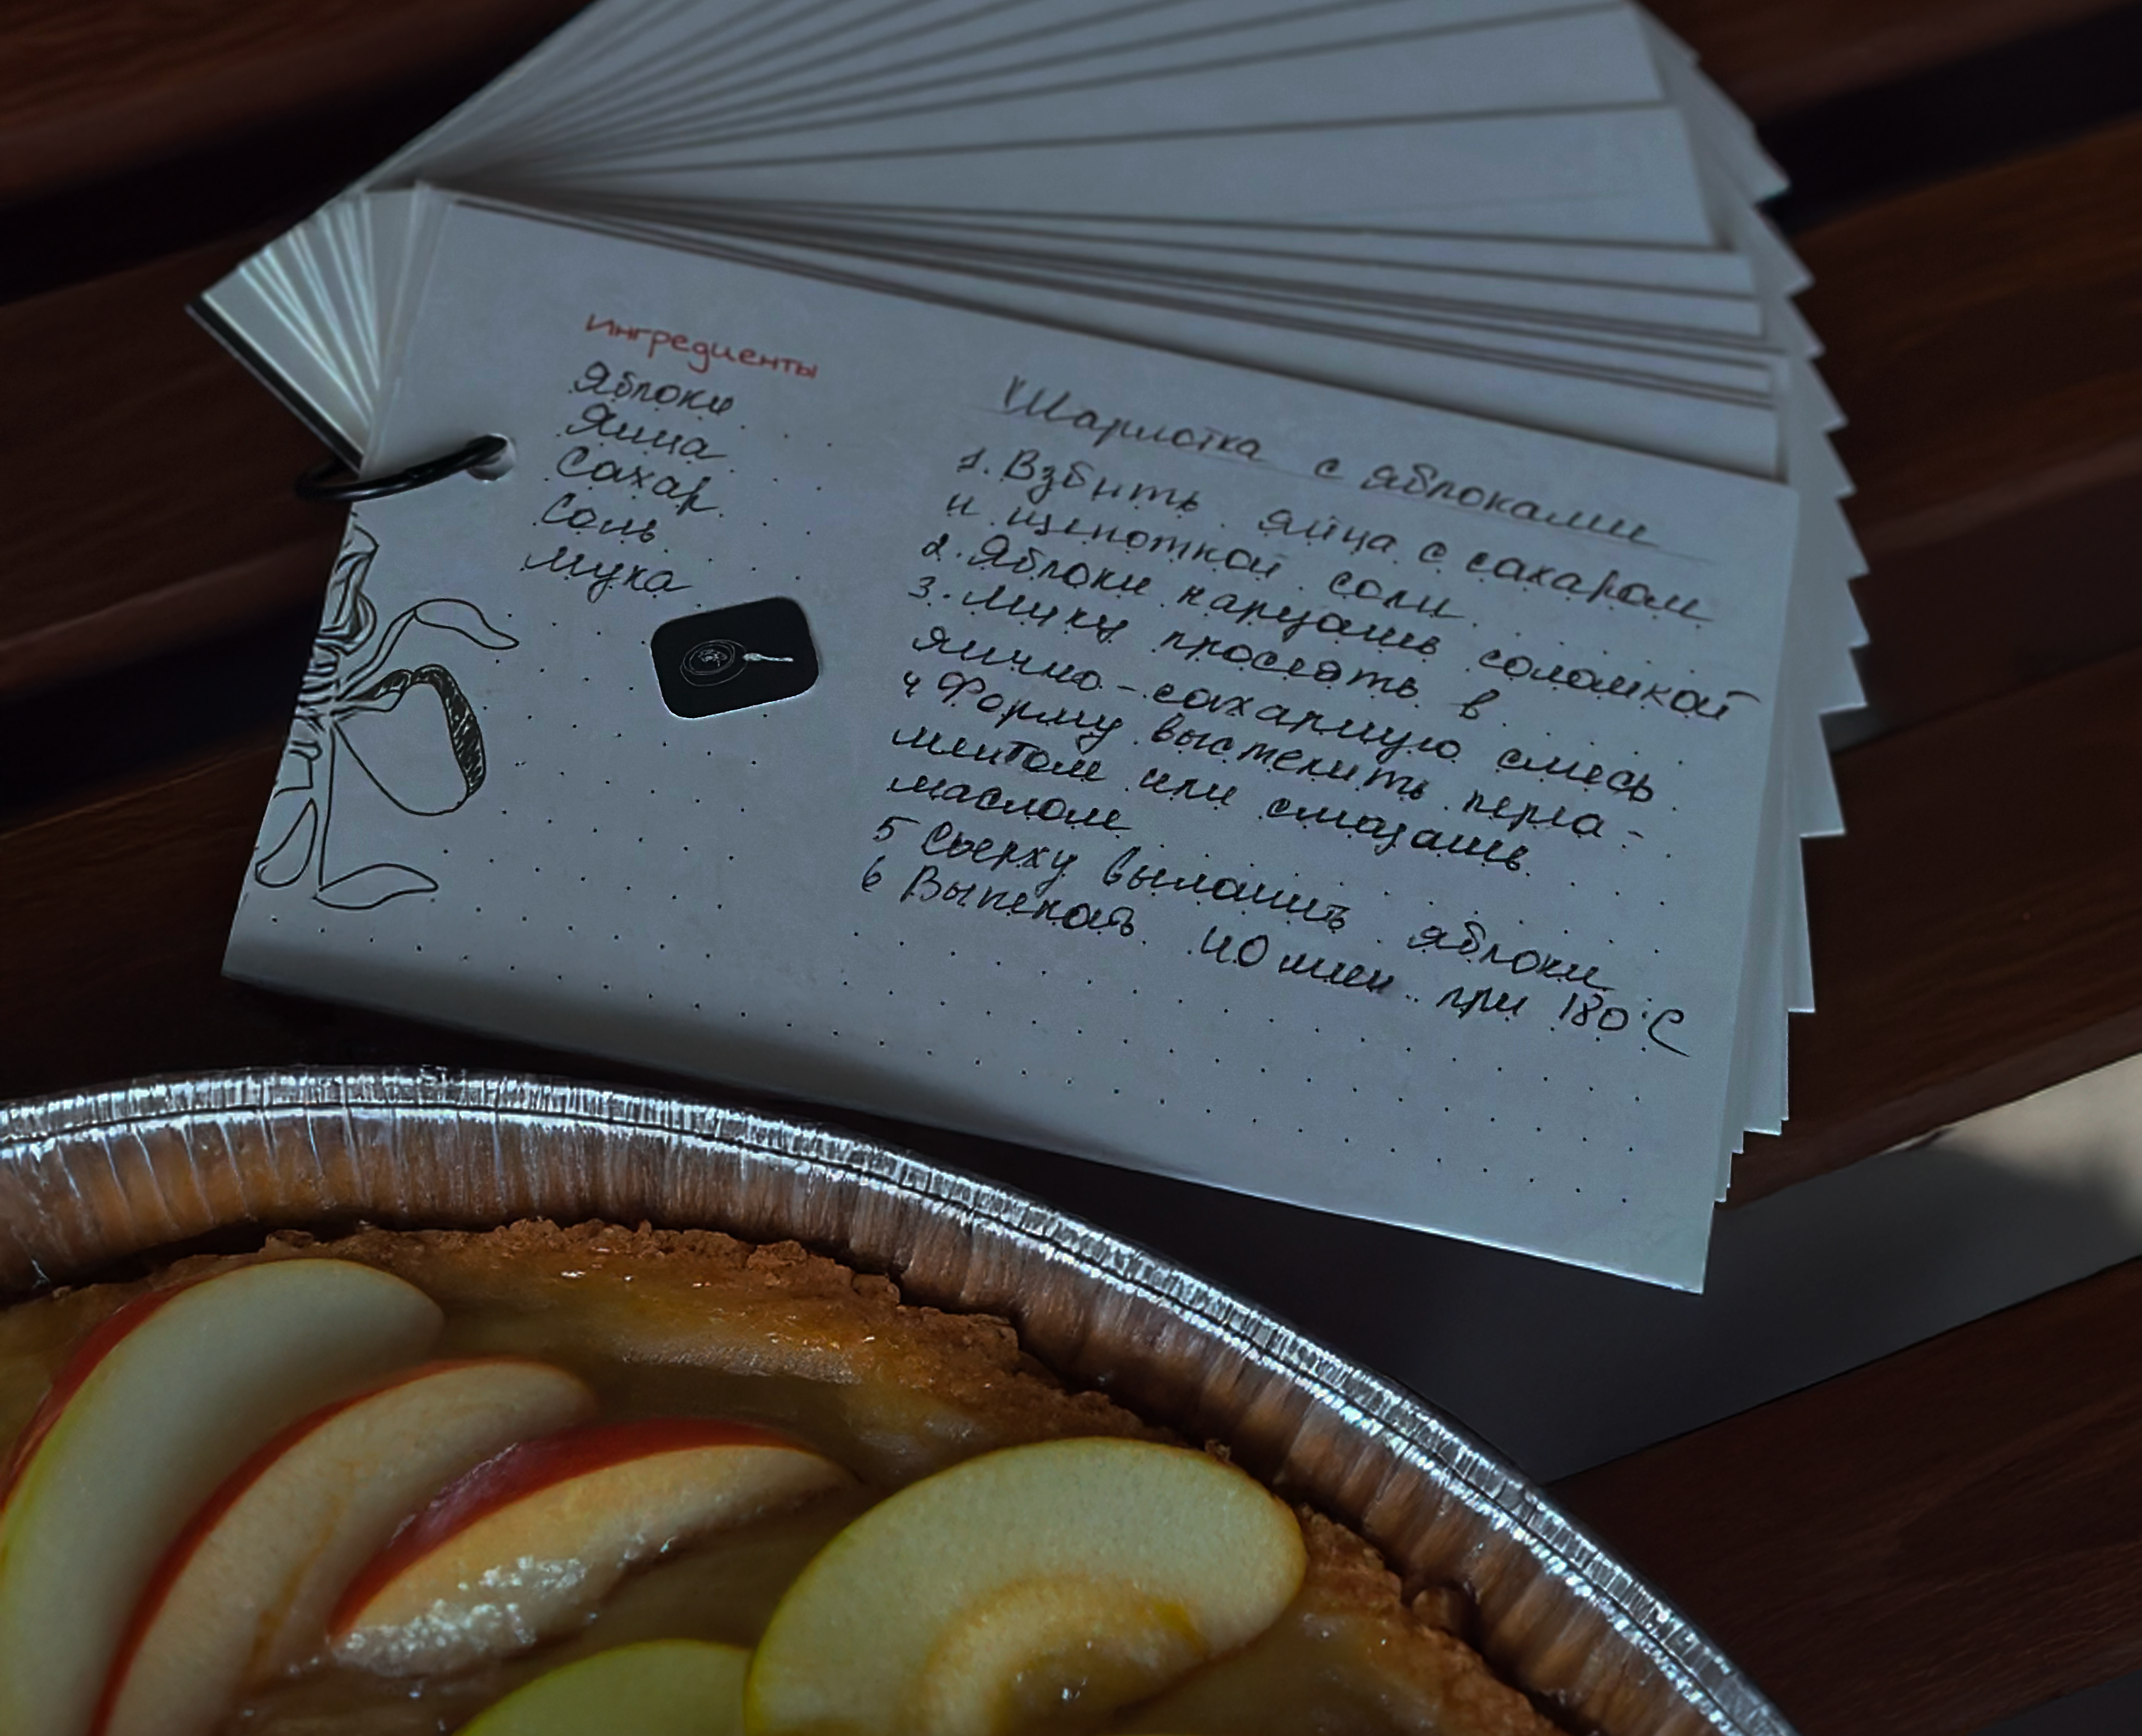 Ингредиенты
Яблоки
Яйца
Сахар
Соль
Мука
Шарлотка с яблоками
1. Взбить яйца с сахаром
и щепоткой соли
2. Яблоки нарезать соломкой
3. Муку просеять в
яично-сахарную смесь
4 Форму выстелить перга-
ментом или смазать
маслом
5 Сверху выложить яблоки
6 Выпекать 40 мин при 180°С